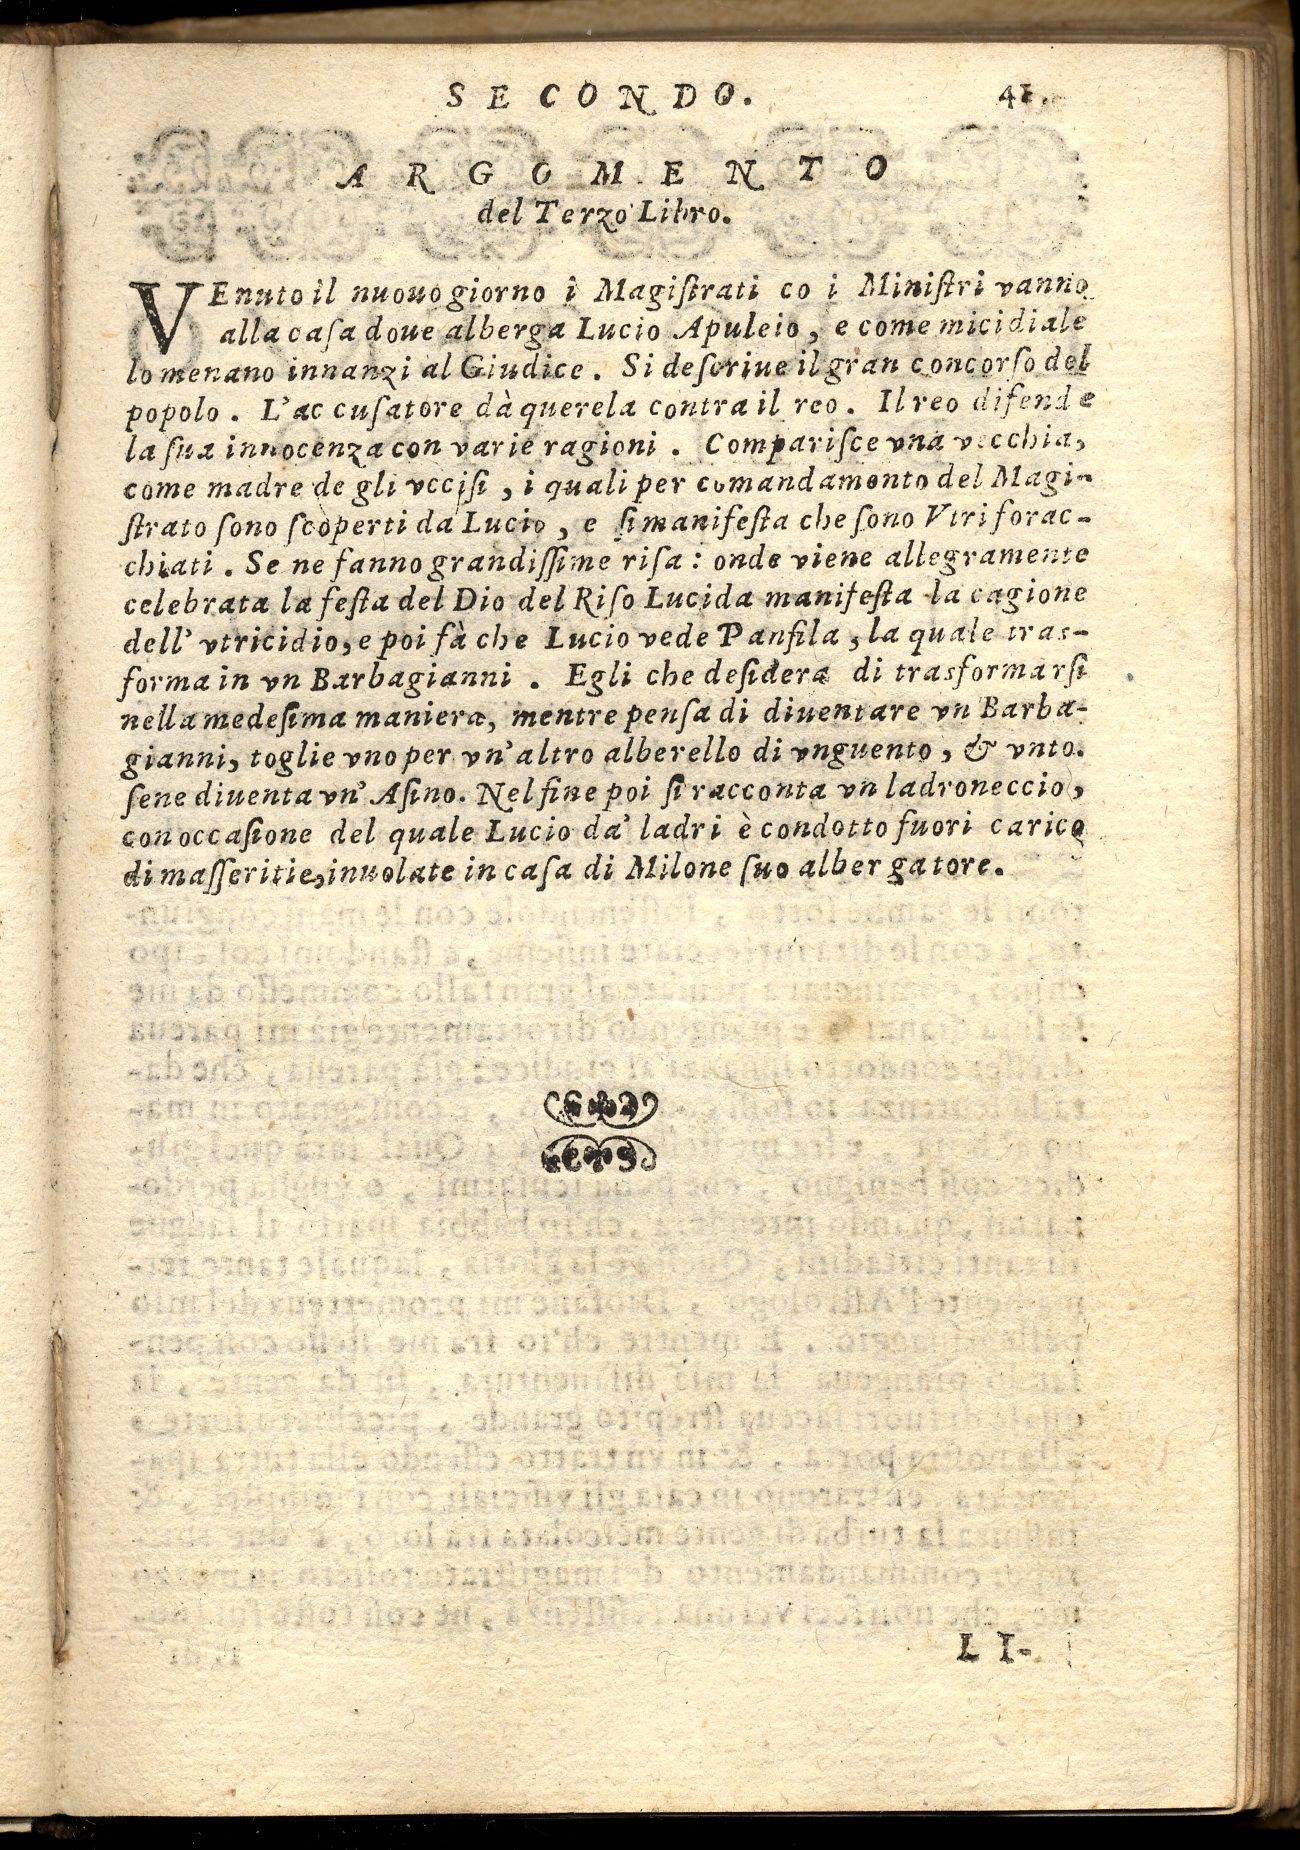 SECONDO. 41.
ARGOMENTO
del Terzo Libro.
VEnuto il nuouo giorno i Magiſtrati co i Miniſtri vanno
alla caſa doue alberga Lucio Apuleio, e come micidiale
lo menano innanzi al Giudice. Si deſcriue il gran concorſo del
popolo. L'accuſatore dà querela contra il reo. Il reo difende
la ſua innocenza con varie ragioni. Compariſce vna vecchia,
come madre de gli vcciſi, i quali per comandamento del Magi-
ſtrato ſono ſcoperti da Lucio, e ſi manifeſta che ſono Vtri forac-
chiati. Se ne fanno grandiſſime riſa: onde viene allegramente
celebrata la feſta del Dio del Riſo Lucida manifeſta la cagione
dell' vtricidio, e poi fà che Lucio vede Panfila, la quale tras-
forma in vn Barbagianni. Egli che deſidera di trasformarſi
nella medeſima maniera, mentre penſa di diuentare vn Barba-
gianni, toglie vno per vn' altro alberello di vnguento, & vnto.
ſene diuenta vn' Aſino. Nel fine poi ſi racconta vn ladroneccio,
con occaſione del quale Lucio da' ladri è condotto fuori carico
di maſſeritie, inuolate in caſa di Milone ſuo albergatore.
LI-